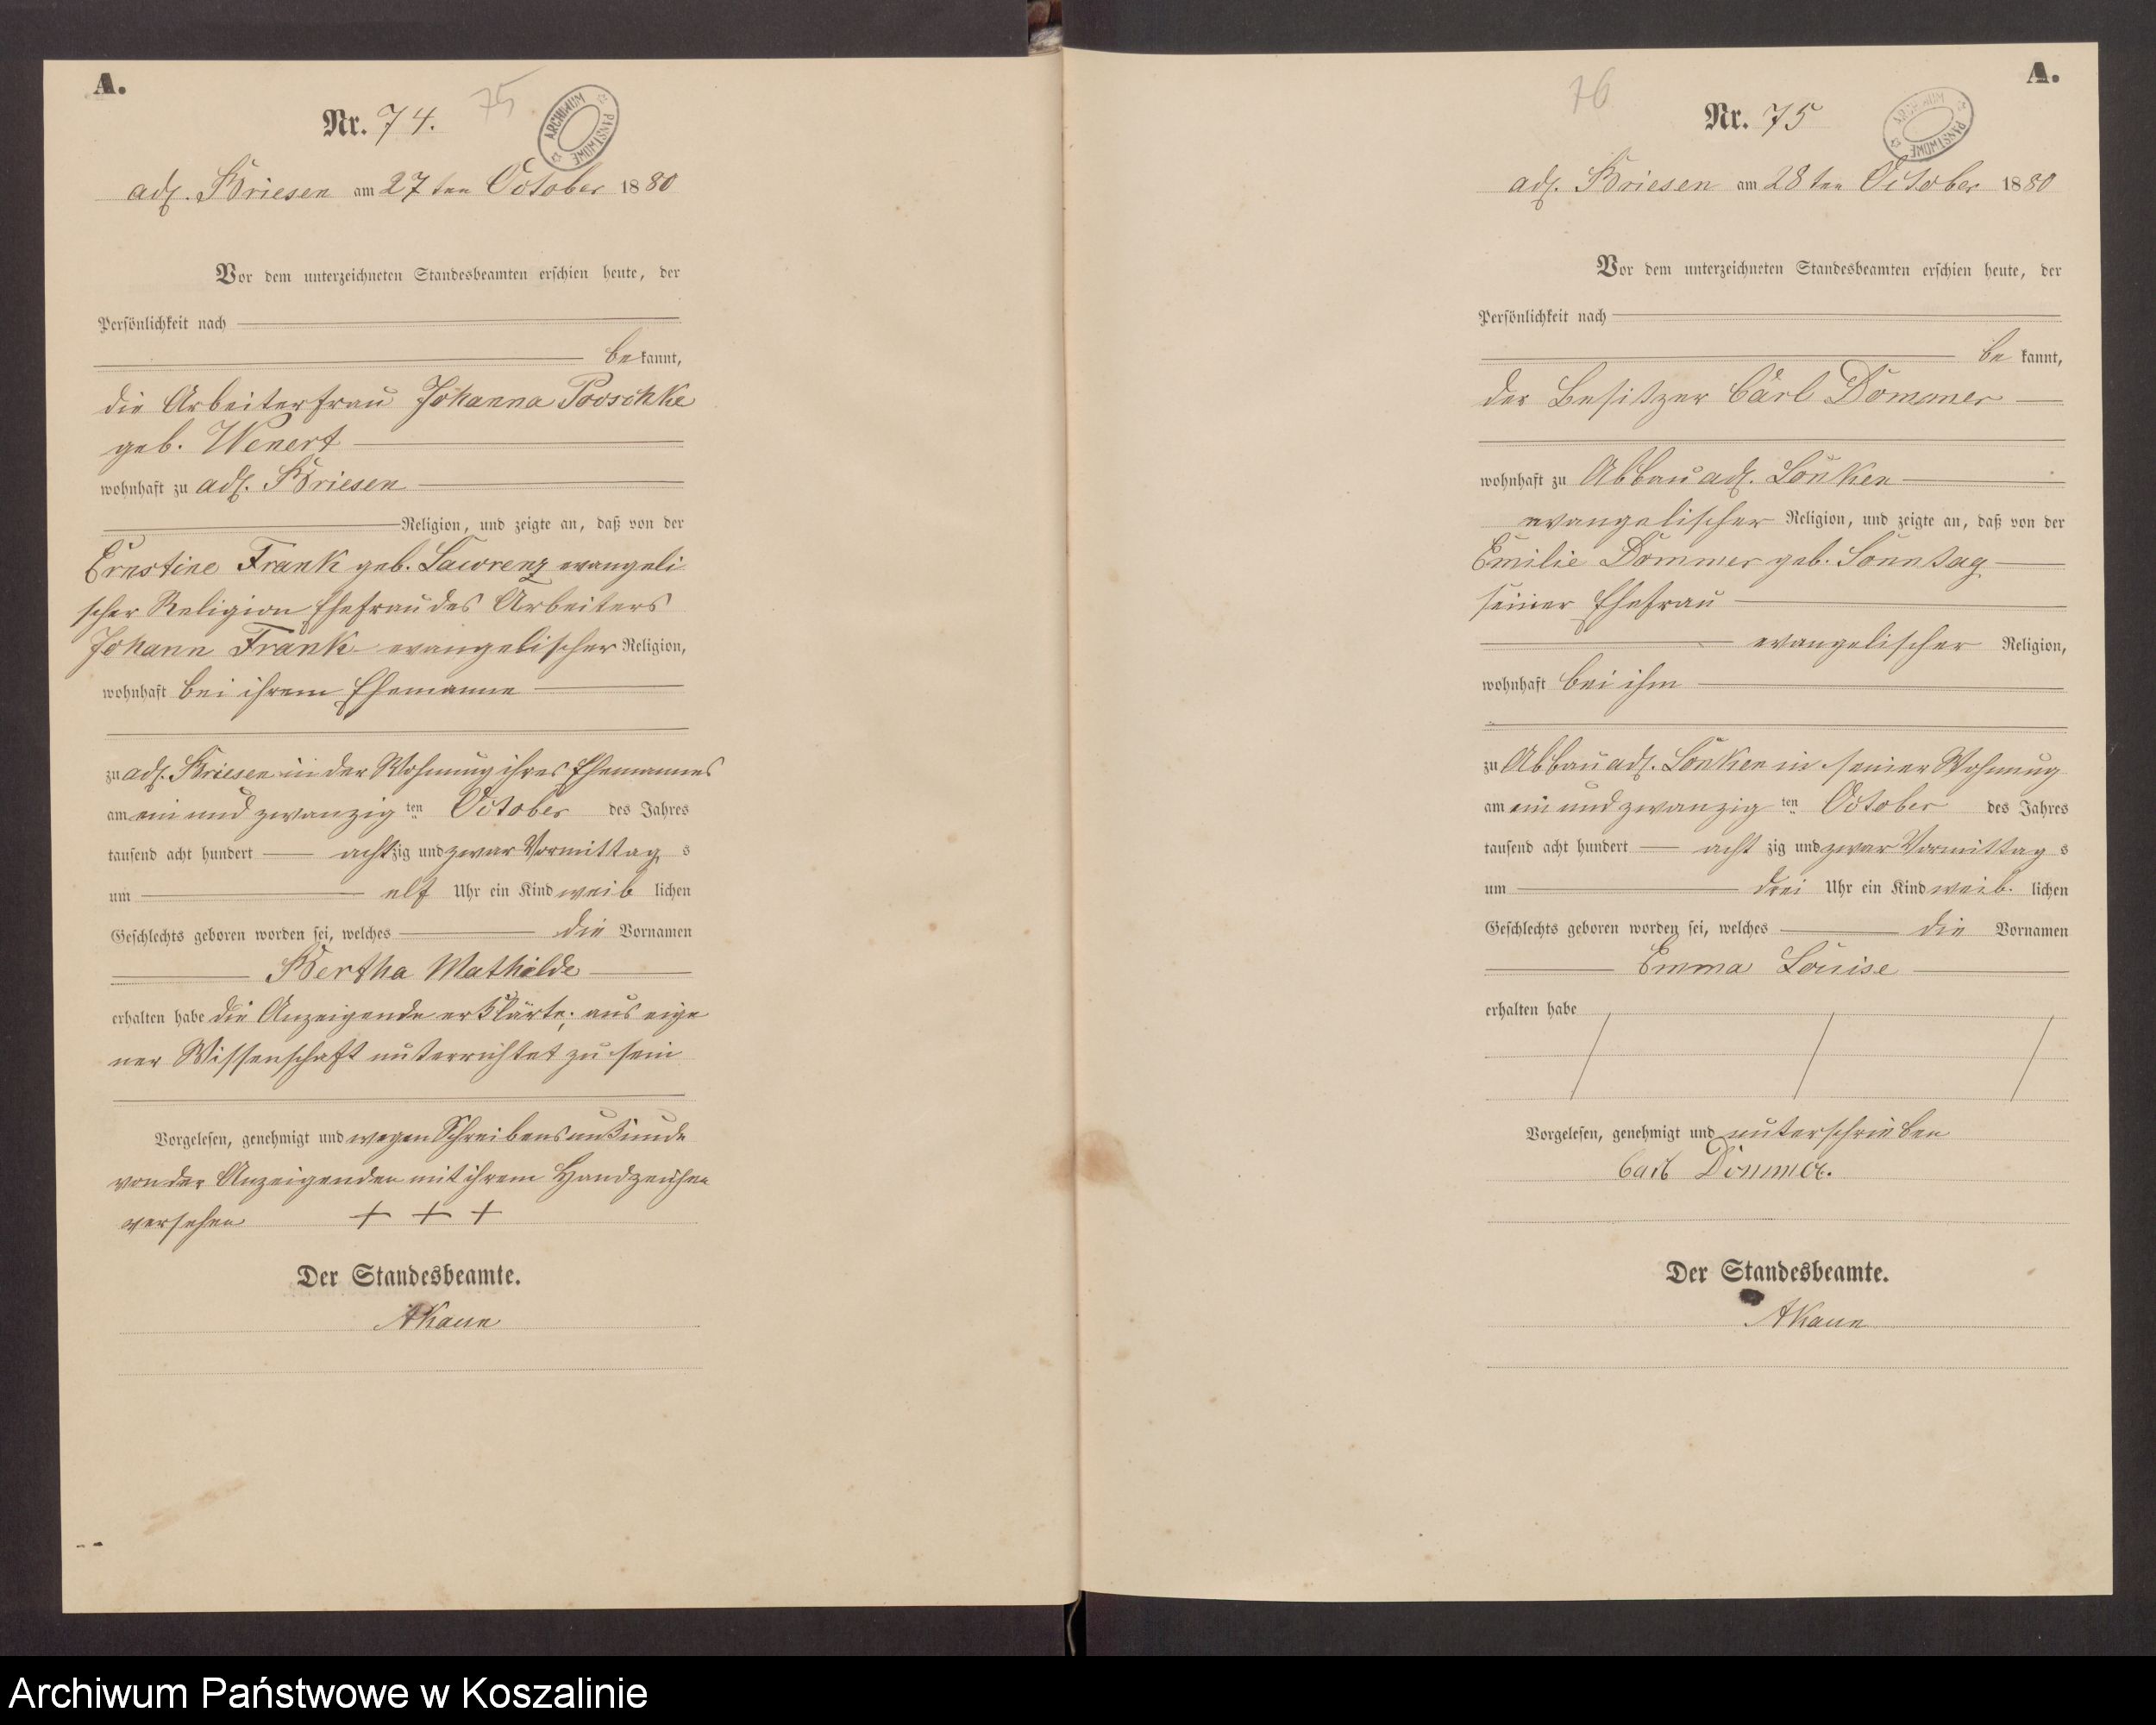 A.
Nr. 74.
75
ARCHIWUM PAŃSTWOWE
adl. Briesen am 27ten October 1880
Vor dem unterzeichneten Standesbeamten erschien heute, der
Persönlichkeit nach
be kannt,
die Arbeiterfrau Johanna Pooschke
geb. Wenert
wohnhaft zu adl. Briesen
Religion, und zeigte an, daß von der
Ernstine Frank geb. Lawrenz evangeli
scher Religion Ehefrau des Arbeiters
Johann Frank evangelischer Religion,
wohnhaft bei ihrem Ehemanne
zu adl. Briesen in der Wohnung ihres Ehemannes
am ein und zwanzig ten October des Jahres
tausend acht hundert acht zig und zwar Vormittag s
um elf Uhr ein Kind weib lichen
Geschlechts geboren worden sei, welches die Vornamen
Bertha Mathilde
erhalten habe die Anzeigende erklärte, aus eige
ner Wissenschaft unterrichtet zu sein
Vorgelesen, genehmigt und wegen Schreibensunkunde
von der Anzeigenden mit ihrem Handzeichen
versehen + + +
Der Standesbeamte.
A.
Nr. 75
76
ARCHIWUM PAŃSTWOWE
adl. Briesen am 28ten October 1880
Vor dem unterzeichneten Standesbeamten erschien heute, der
Persönlichkeit nach
be kannt,
der Besitzer Carl Dommer
wohnhaft zu Abbau adl. Lonken
evangelischer Religion, und zeigte an, daß von der
Emilie Dommer geb. Sonntag
seiner Ehefrau
evangelischer Religion,
wohnhaft bei ihm
zu Abbau adl. Lonken in seiner Wohnung
am ein und zwanzig ten October des Jahres
tausend acht hundert acht zig und zwar Vormittag s
um drei Uhr ein Kind weib. lichen
Geschlechts geboren worden sei, welches die Vornamen
Emma Louise
erhalten habe
Vorgelesen, genehmigt und unterschrieben
Carl Dommer.
Der Standesbeamte.
Archiwum Państwowe w Koszalinie